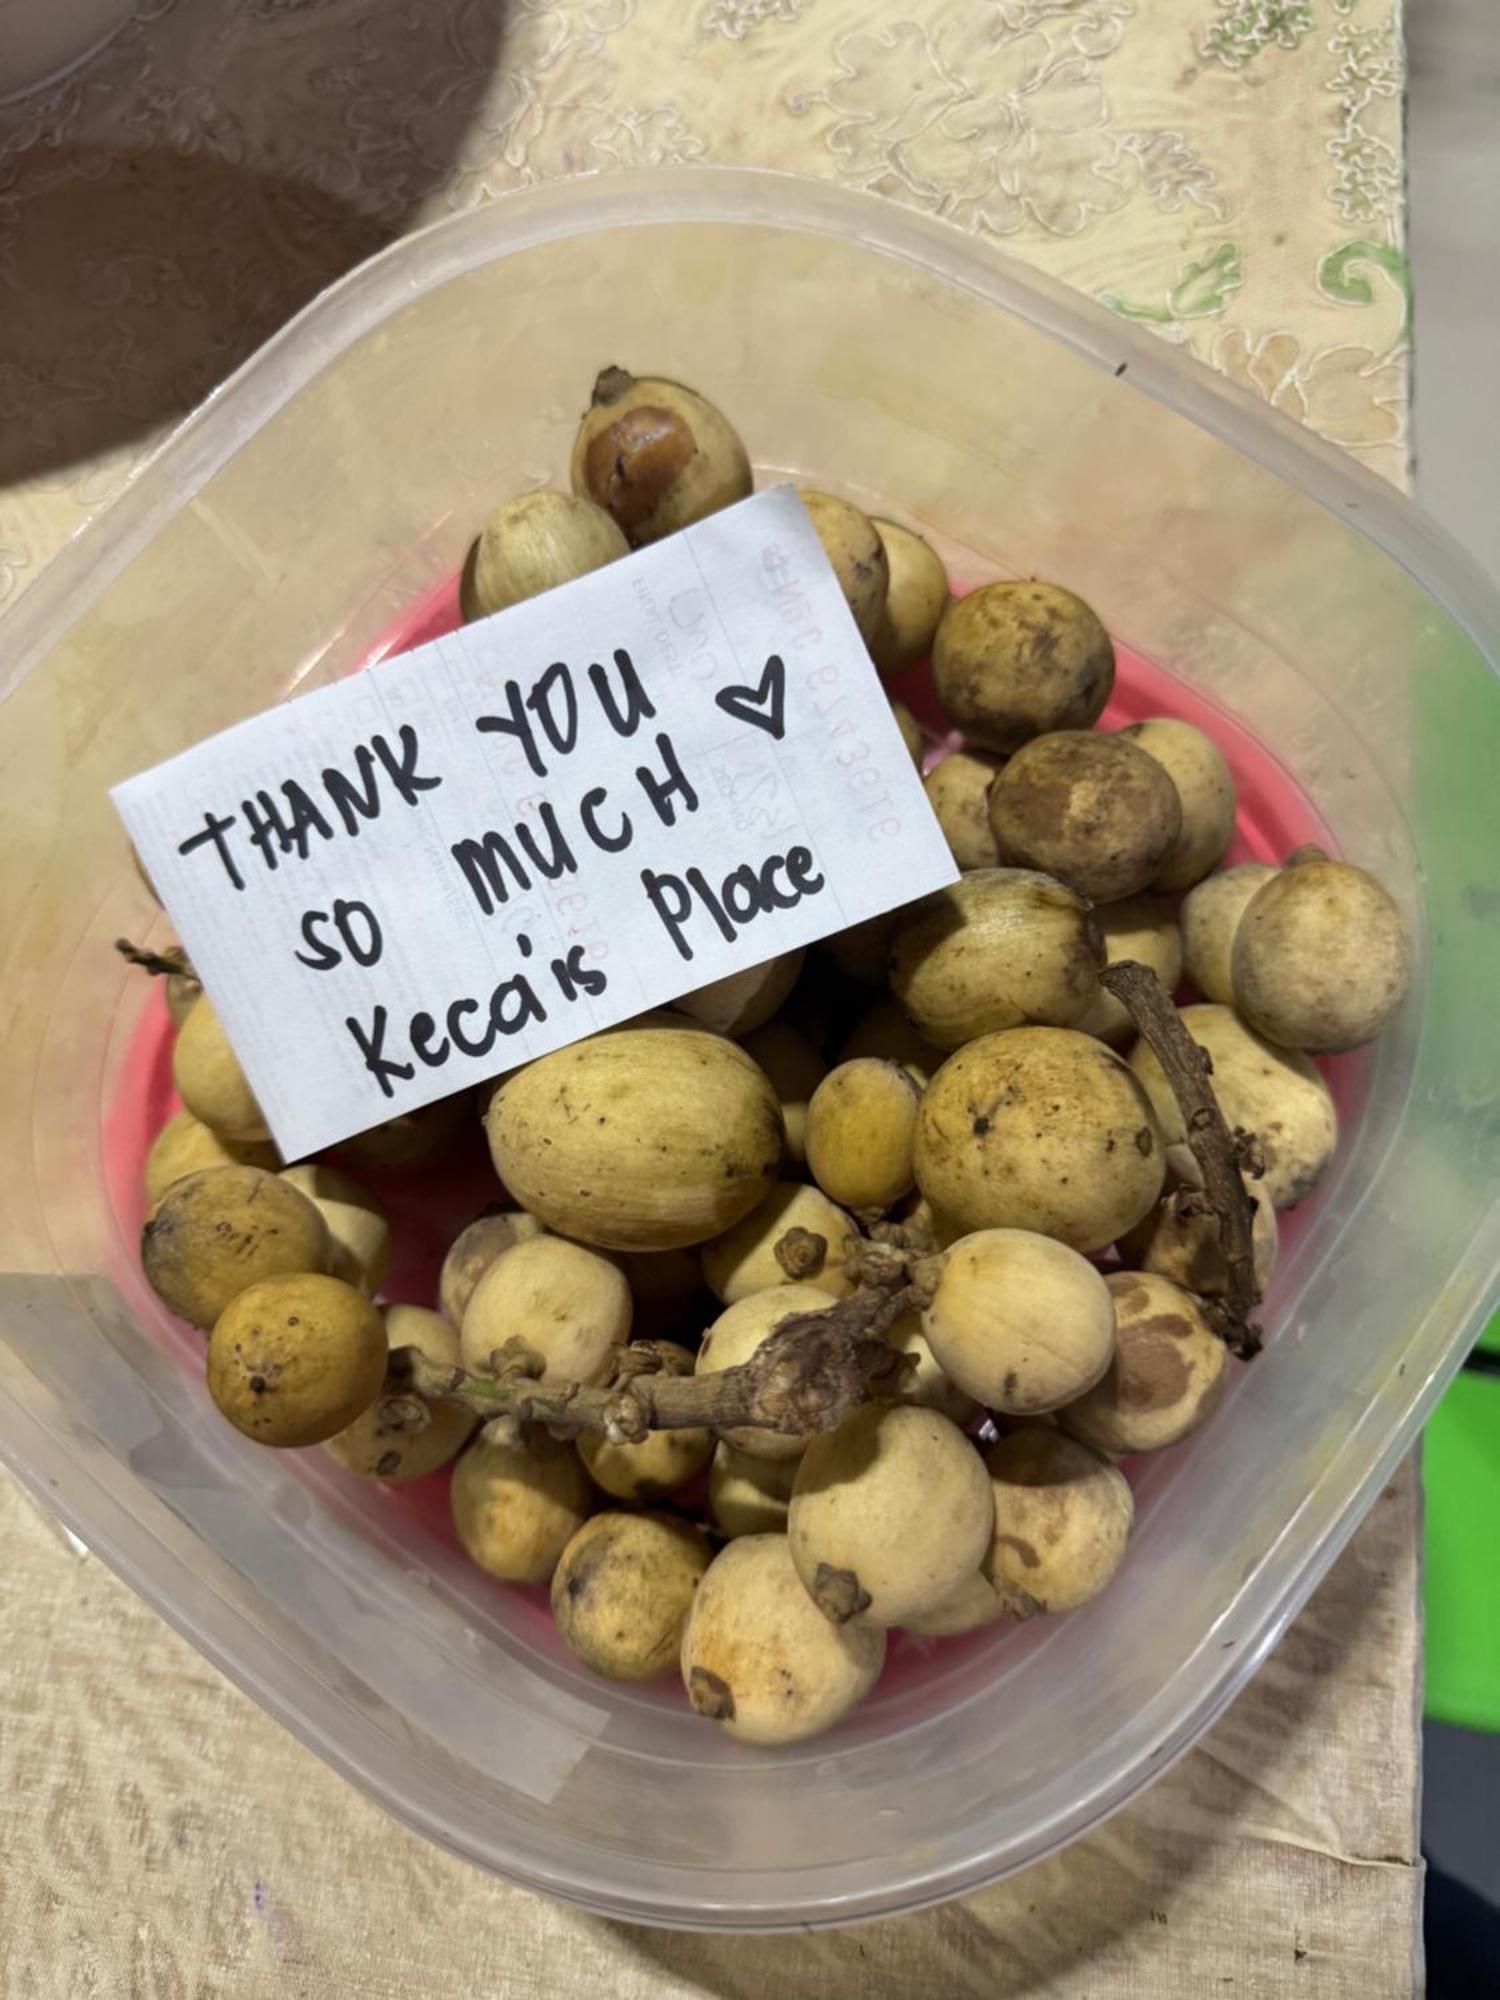 THANK YOU ♡
SO MUCH
Keca's Place